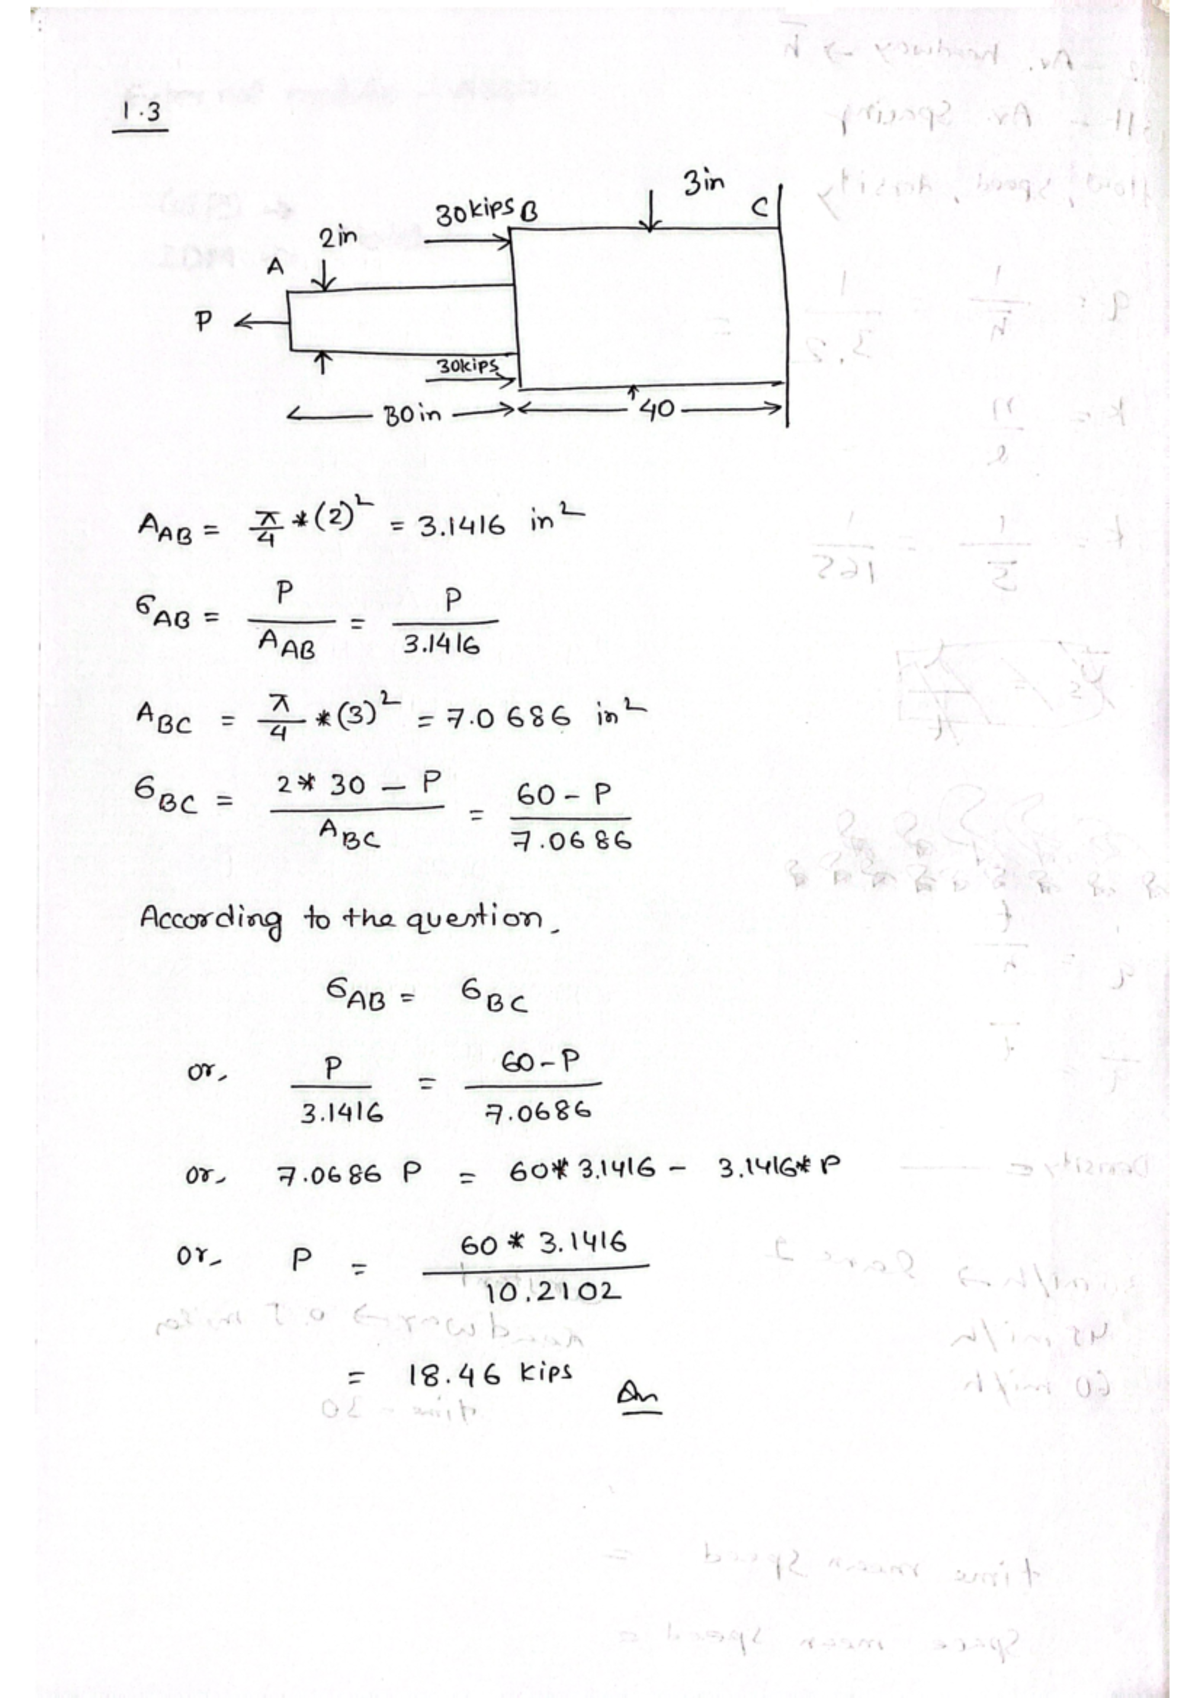 1.3
3in
30kips B
C
2in
A
P
30kips
30in
40
A_AB = π/4 * (2)² = 3.1416 in²
σ_AB = P/A_AB = P/3.1416
A_BC = π/4 * (3)² = 7.0686 in²
σ_BC = (2* 30 – P)/A_BC = (60 - P)/7.0686
According to the question,
σ_AB = σ_BC
or, P/3.1416 = (60-P)/7.0686
or, 7.0686 P = 60* 3.1416 - 3.1416* P
or, P = (60 * 3.1416)/10.2102
= 18.46 kips An